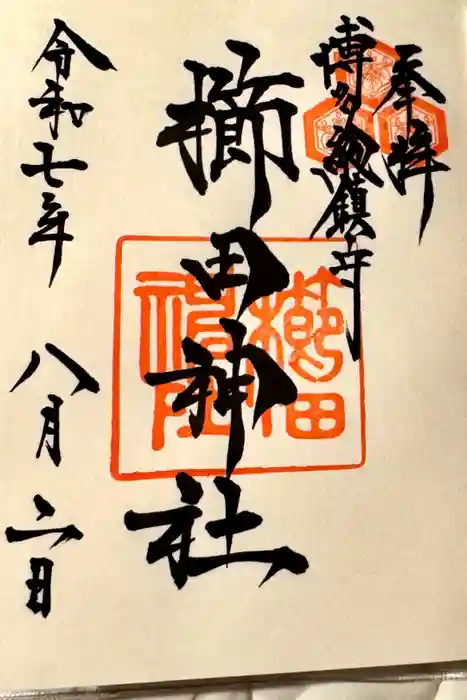 奉拝
博多総鎮守
櫛田神社
櫛田
神社
令和七年 八月二日